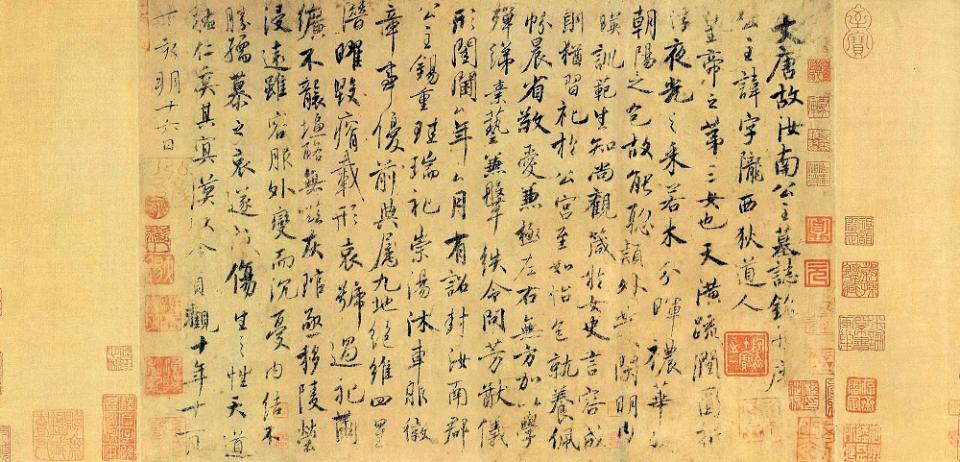 大唐故汝南公主墓誌銘并序
公主諱字隴西狄道人
皇帝之第三女也天潢疏潤圓折
浮夜光之采若木分暉穠華照
朝陽之色故能聡穎外發閑明內
暎訓範生知尚觀箴於女史言容成
則猶習礼於公宮至如怡色就養佩
帉晨省敬愛兼極左右無方加以學
殫綈素藝兼鞶紩令問芳猷儀
形閨閫△年△月有詔封汝南郡
公主錫重珪瑞礼崇湯沐車服徽
章事優前典屬九地絕維四星
潛曜毀瘠載形哀號過礼繭
纊不襲塩酪無嗞灰琯亟移陵塋
浸遠雖容服外變而沉憂內結不
勝孺慕之哀遂成傷生之性天道
祐仁奚其冥漠以今貞觀十年十一月
丁亥朔十六日